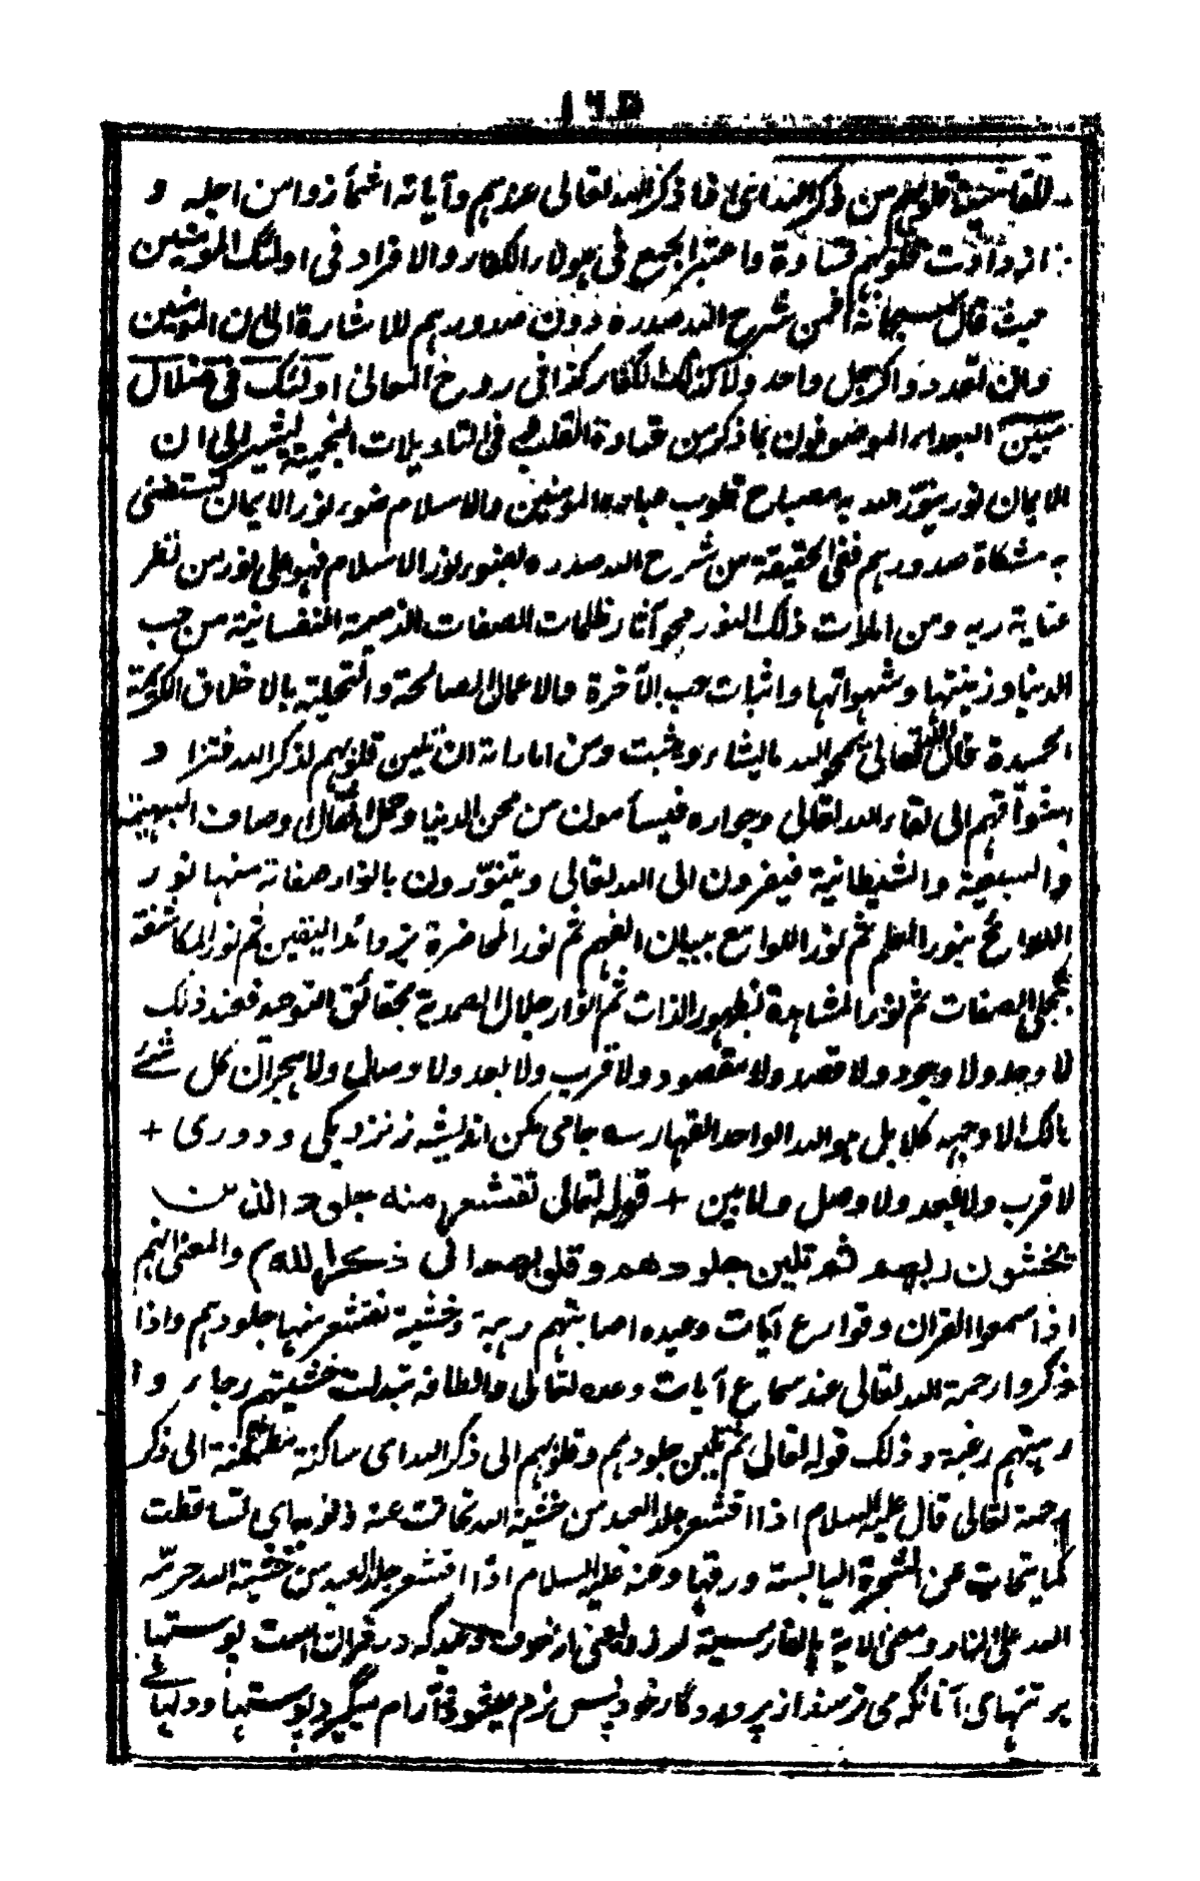 ١٦٥
للقاسية قلوبهم من ذكر الله اي اذا ذكر الله تعالى عندهم وآياته اشمأزوا من اجله و
ازدادت قلوبهم قساوة واعتبر الجمع في هولاء الكفار والافراد في اولئك المومنين
حيث قال سبحانه افمن شرح الله صدره دون صدورهم للاشارة الى ان المومنين
وان تعددوا كرجل واحد ولا كذلك الكفار كذا في روح المعاني اولئك في ضلال
مبين البعداء الموصوفون بما ذكر من قساوة القلب في التاويلات النجمية يشير الى ان
الايمان نور ينور الله به مصباح قلوب عباده المومنين والاسلام ضوء نور الايمان تستضئ
به مشكاة صدورهم ففي الحقيقة من شرح الله صدره بضوء نور الاسلام فهو على نور من نظر
عناية ربه ومن امارات ذلك النور محو آثار ظلمات الصفات الذميمة النفسانية من حب
الدنيا وزينتها وشهواتها واثبات حب الآخرة والاعمال الصالحة والتحلية بالاخلاق الكريمة
الحميدة قال الله تعالى يمحو الله ما يشاء ويثبت ومن اماراته ان تلين قلوبهم لذكر الله فتزا و
اشواقهم الى لقاء الله تعالى وجواره فيسأمون من محن الدنيا وحمل اثقال اوصاف البهيمة
والسبعية والشيطانية فيفرون الى الله تعالى ويتنورون بانوار صفاته منها نور
اللوائح بنور العلم ثم نور اللوامع ببيان الفهم ثم نور المحاضرة بزوائد اليقين ثم نور المكاشفة
بتجلي الصفات ثم نور المشاهدة بظهور الذات ثم انوار جلال الصمدية بحقائق التوحيد فعند ذلك
لا وجد ولا وجود ولا قصد ولا مقصود ولا قرب ولا بعد ولا وصال ولا هجران كل شئ
هالك الا وجهه كلا بل هو الله الواحد القهار سه جامي مكن انديشه ز نزديكي ودوري +
لا قرب ولا بعد ولا وصل ولا بين + قوله تعالى تقشعر منه جلود الذين
يخشون ربهم ثم تلين جلودهم وقلوبهم الى ذكر الله م والمعنى انهم
اذا سمعوا القرآن وقوارع آيات وعيده اصابتهم رهبة وخشية تقشعر منها جلودهم واذا
ذكروا رحمة الله تعالى عند سماع آيات وعده تعالى والطافه تبدلت خشيتهم رجاء و
رهبتهم رغبة وذلك قوله تعالى ثم تلين جلودهم وقلوبهم الى ذكر الله اي ساكنة مطمئنة الى ذكر
رحمة تعالى قال عليه السلام اذا اقشعر جلد العبد من خشية الله تحاتت عنه ذنوبه اي تساقطت
كما يتحات عن الشجرة اليابسة ورقها وعنه عليه السلام اذا اقشعر جلد العبد من خشية الله حرمه
الله على النار ومعنى الاية بالفارسية لرزد يعني از خوف وعيد كه در قرآن است پوستها
بر تنهاى آنانكه مي ترسند از پروردگار خود پس نرم ميشود وآرام ميگيرد پوستها ودلهائے